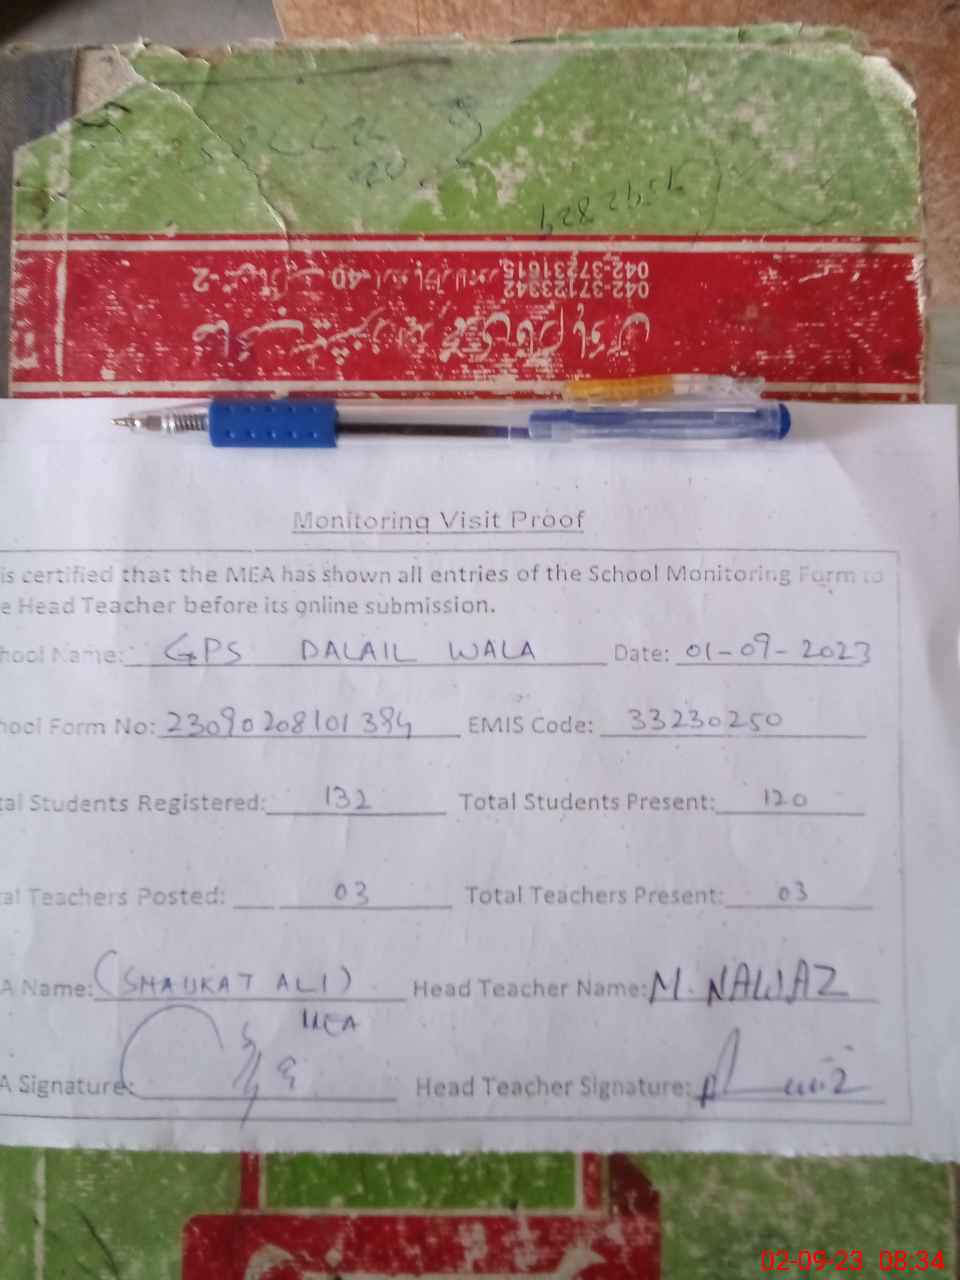 042-37231615,
042-37123342
Monitoring Visit Proof
is certified that the MEA has shown all entries of the School Monitoring Form to
e Head Teacher before its online submission.
hool Name: GPS DALAIL WALA Date: 01-09-2023
hool Form No: 23090208101384 EMIS Code: 33230250
tal Students Registered: 132 Total Students Present: 120
al Teachers Posted: 03 Total Teachers Present: 03
A Name: (SHAUKAT ALI) Head Teacher Name: M. NAWAZ
MEA
A Signature: Head Teacher Signature:
02-09-23 08:34